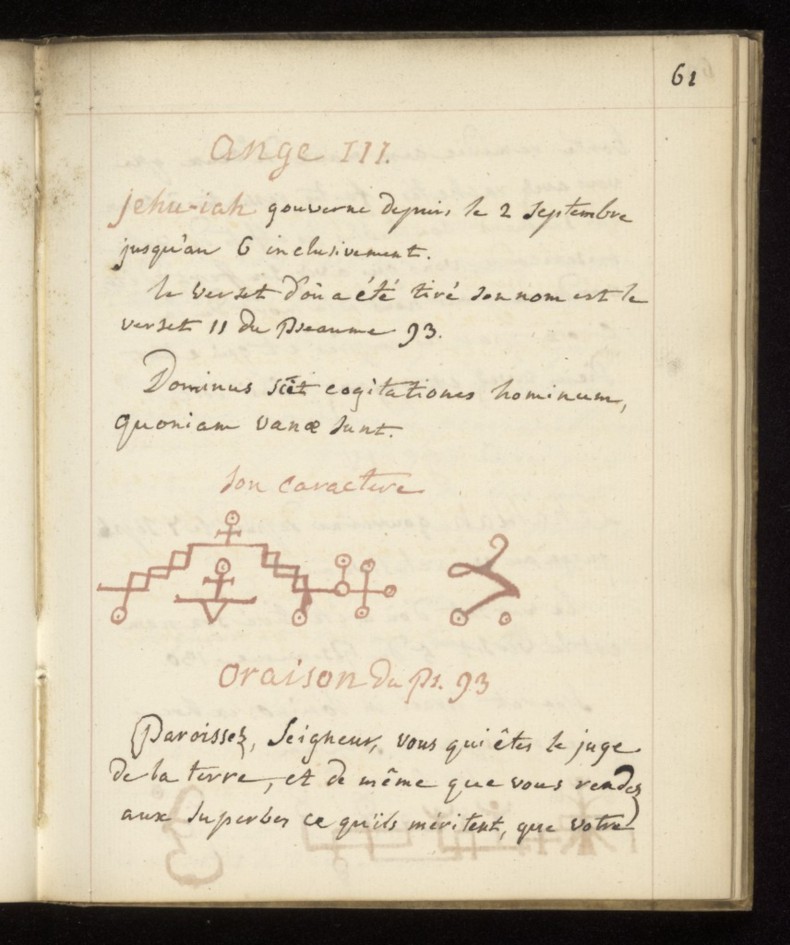 61
Ange III.
jehu-iah gouverne depuis le 2 Septembre
jusqu'au 6 inclusivement.
le verset d'où a été tiré son nom est le
verset 11 du Pseaume 93.
Dominus scit cogitationes hominum,
quoniam vanæ sunt.
Son caractere
Oraison du Ps. 93
Paroissez, Seigneur, vous qui êtes le juge
de la terre, et de même que vous rendez
aux Superbes ce qu'ils méritent, que votre